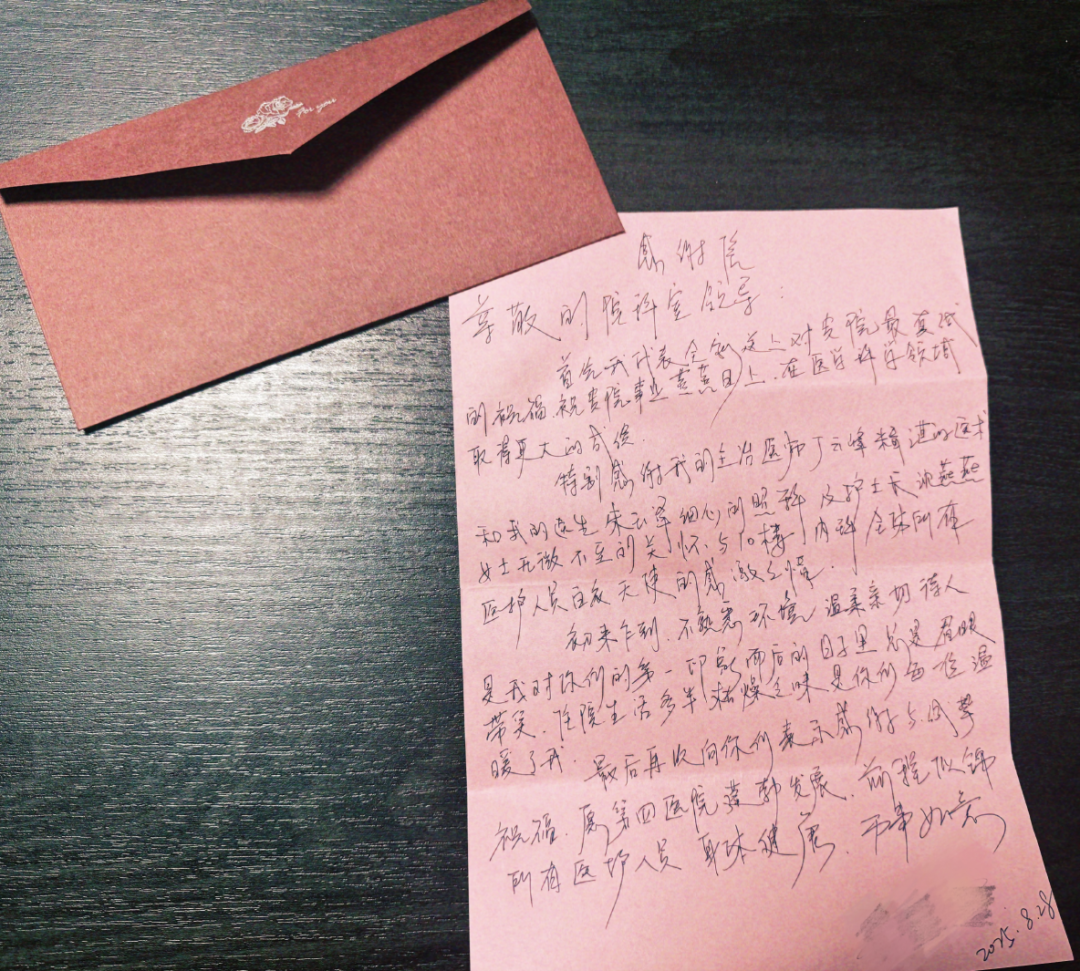 For you
感谢信
尊敬的院科室领导：
首先我代表全家送上对贵院最真诚
的祝福.祝贵院事业蒸蒸日上.在医学科学领域
取得更大的成绩.
特别感谢我的主治医师丁云峰精湛的医术
和我的医生朱云泽细心的照料及护士长沈燕燕
女士无微不至的关怀.与10楼内科全体所有
医护人员白衣天使的感激之情.
初来乍到.不熟悉环境.温柔亲切待人
是我对你们的第一印象而后的日子里总是眉眼
带笑.住院生活多半枯燥乏味是你们每位温
暖了我.
最后再次向你们表示感谢与诚挚
祝福.愿第四医院蓬勃发展.前程似锦
所有医护人员身体健康.万事如意
2025.8.28